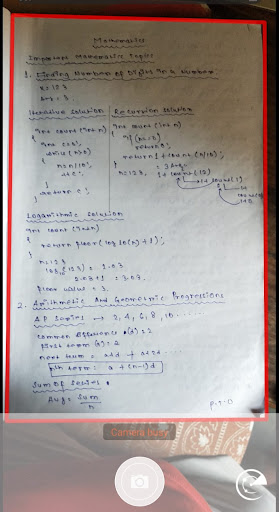 Mathematics
Important Mathematic Topics
1. Finding Number of Digits in a Number:
n = 123
Ans = 3
Iterative Solution
int count (int n)
{
int c=0;
while (n>0)
{
n = n/10;
++c;
}
return c;
}
Recursive Solution
int count (int n)
{
return 0;
return 1 + count (n/10);
n = 123,
1 + count (12)
1 + count (1)
Logarithmic Solution
int count (int n)
{
return floor (log10(n)+1);
}
n = 123
floor value = 3.
2. Arithmetic And Geometric Progressions
A.P Series → 2, 4, 6, 8, 10 .....
common difference (d) = 2
first term (a) = 2
nth term: a + (n-1)d
Sum of Series:
Avg = Sum
n
P.T.O
Camera is